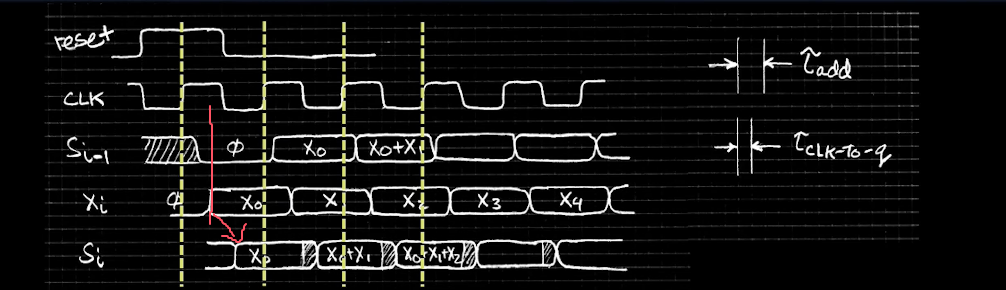 reset
CLK
Si-1 ϕ X0 X0+X1
Xi ϕ X0 X X2 X3 X4
Si X0 X0+X1 X0+X1+X2
τadd
τCLK-TO-q